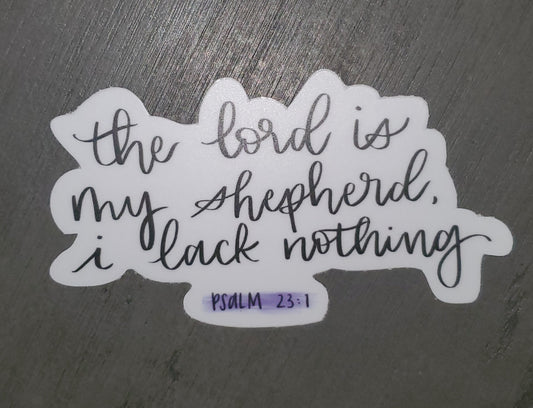 the lord is
my shepherd,
i lack nothing
PSaLM 23:1